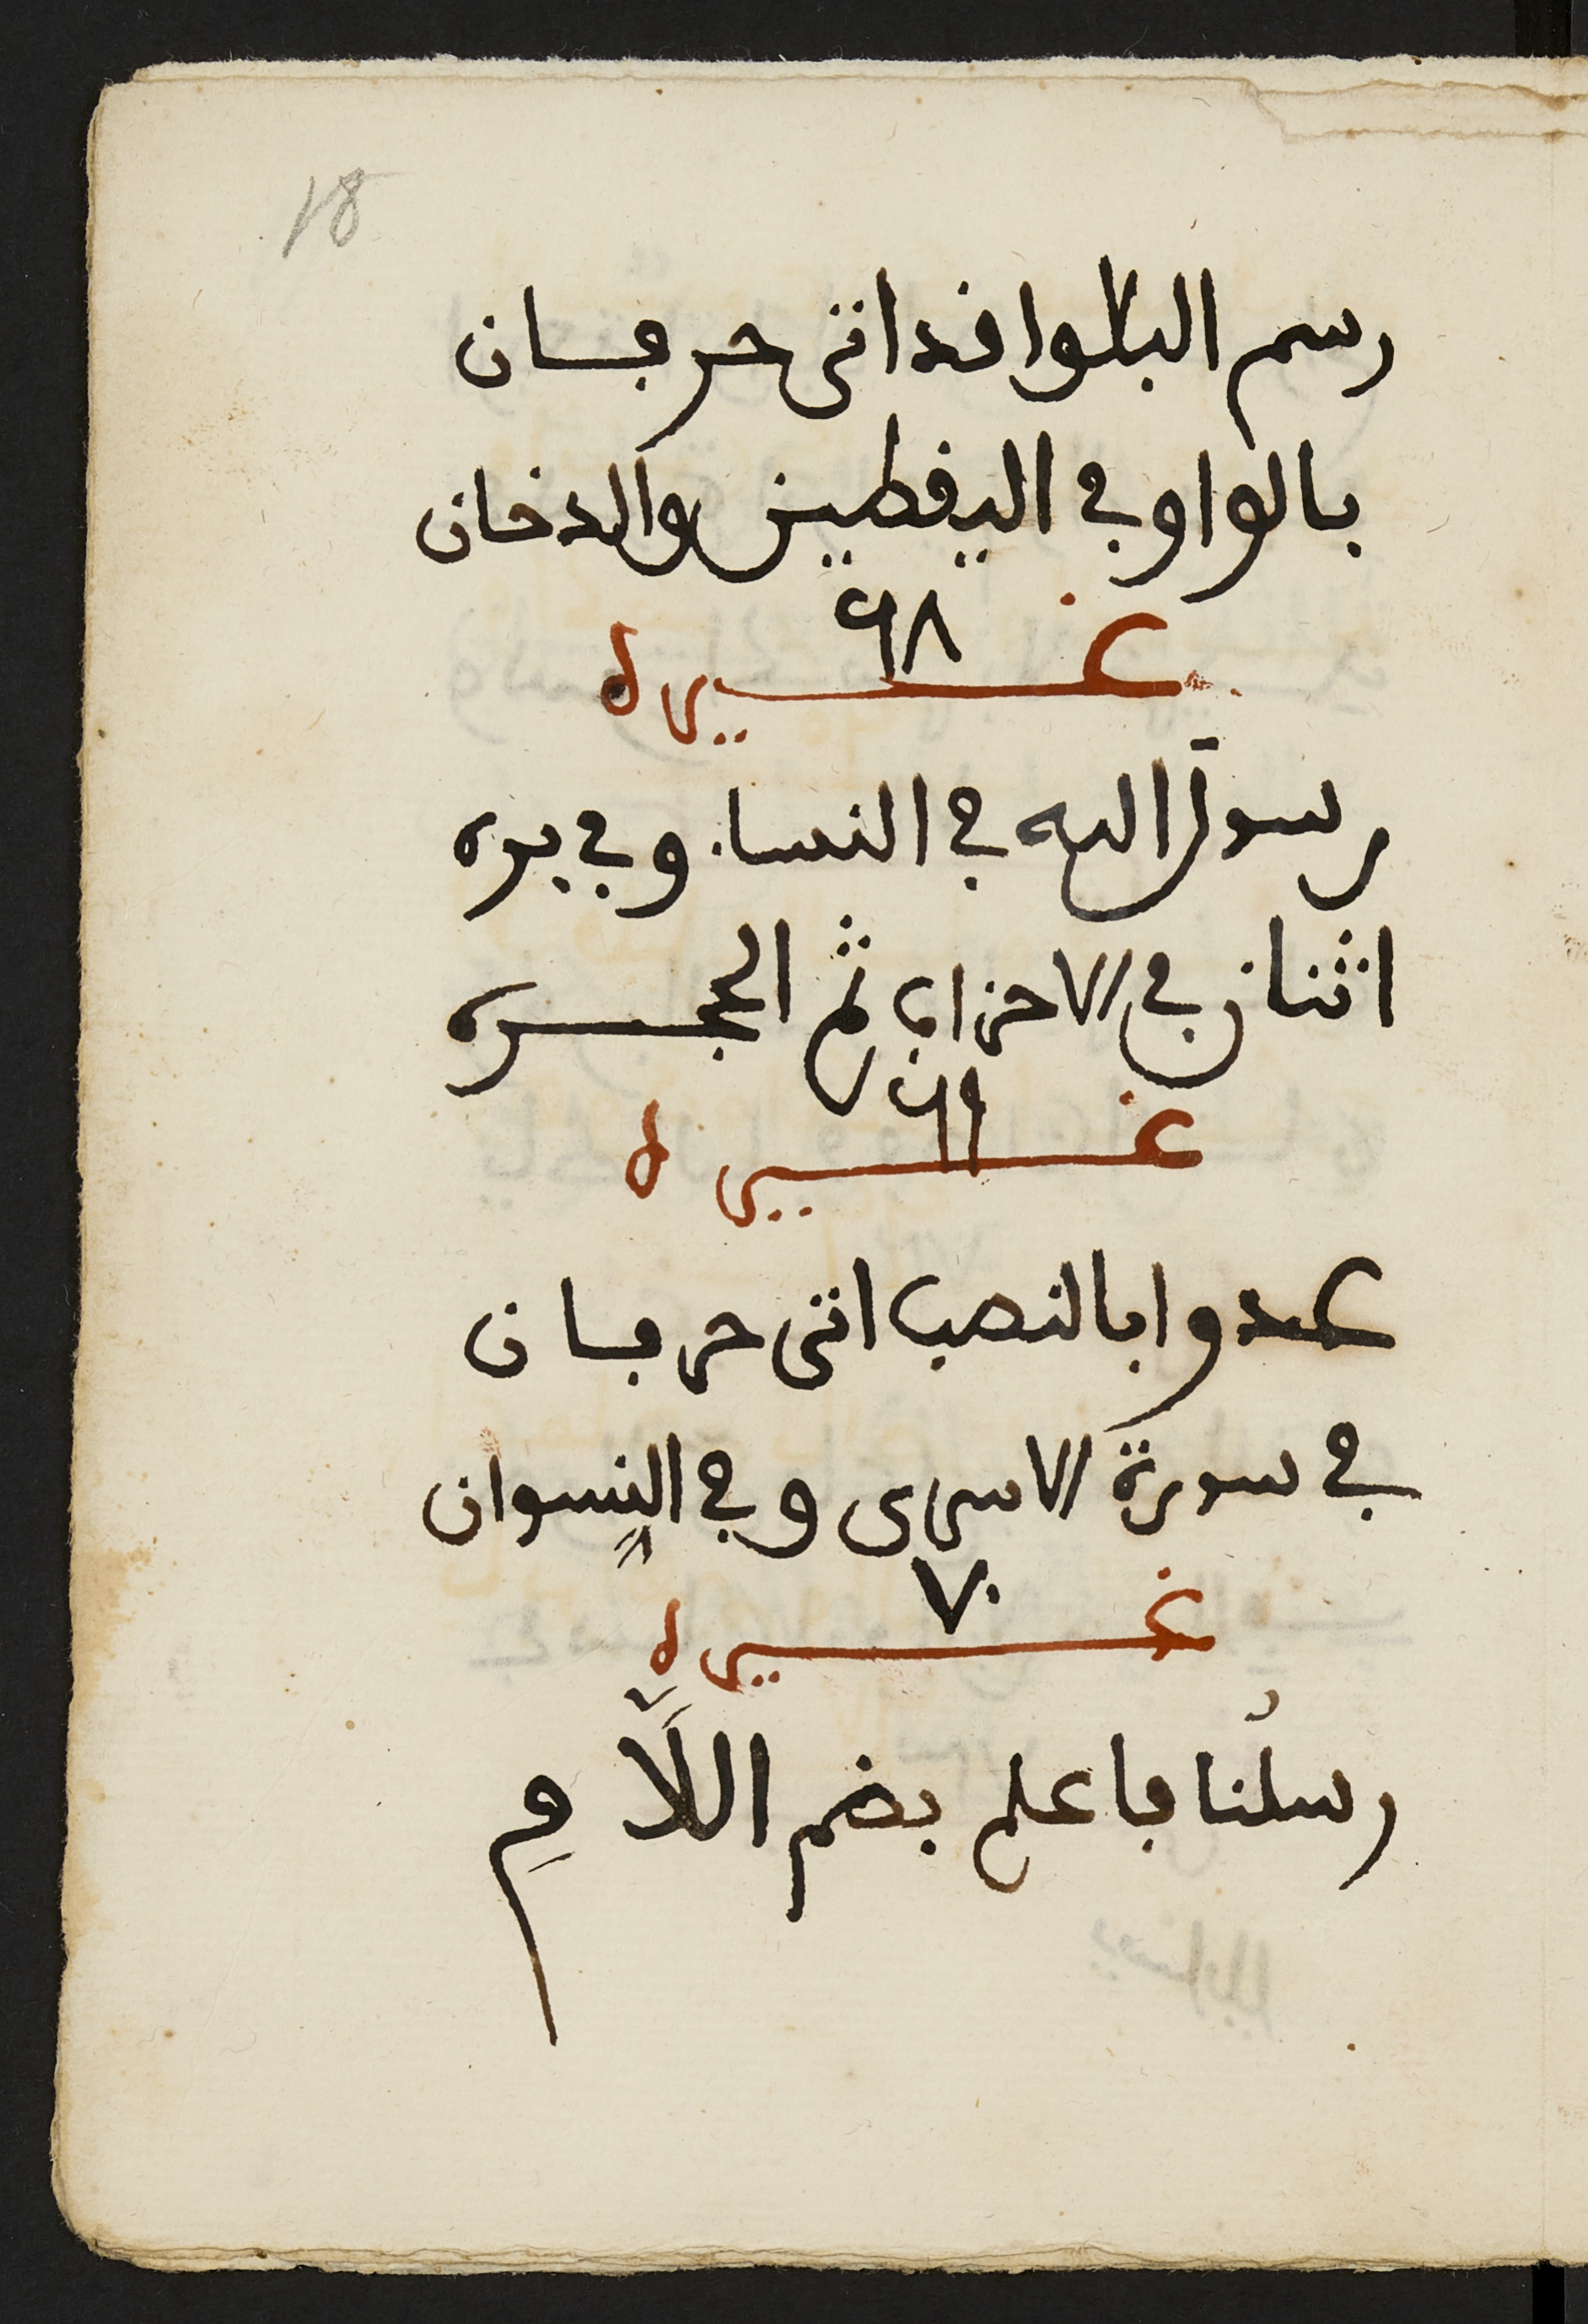 18
رسم البلوا قد اتى حرفان
بالواو في اليقطين والدخان
٦٨
غيره
رسول الله في النساء وفي بره
اثنان في الاحزاب ثم الحجره
٦٩
غيره
عدوا بالنصب اتى حرفان
في سورة الاسرى وفي النسوان
٧٠
غيره
رسلنا فاعلم بضم اللَّامِ